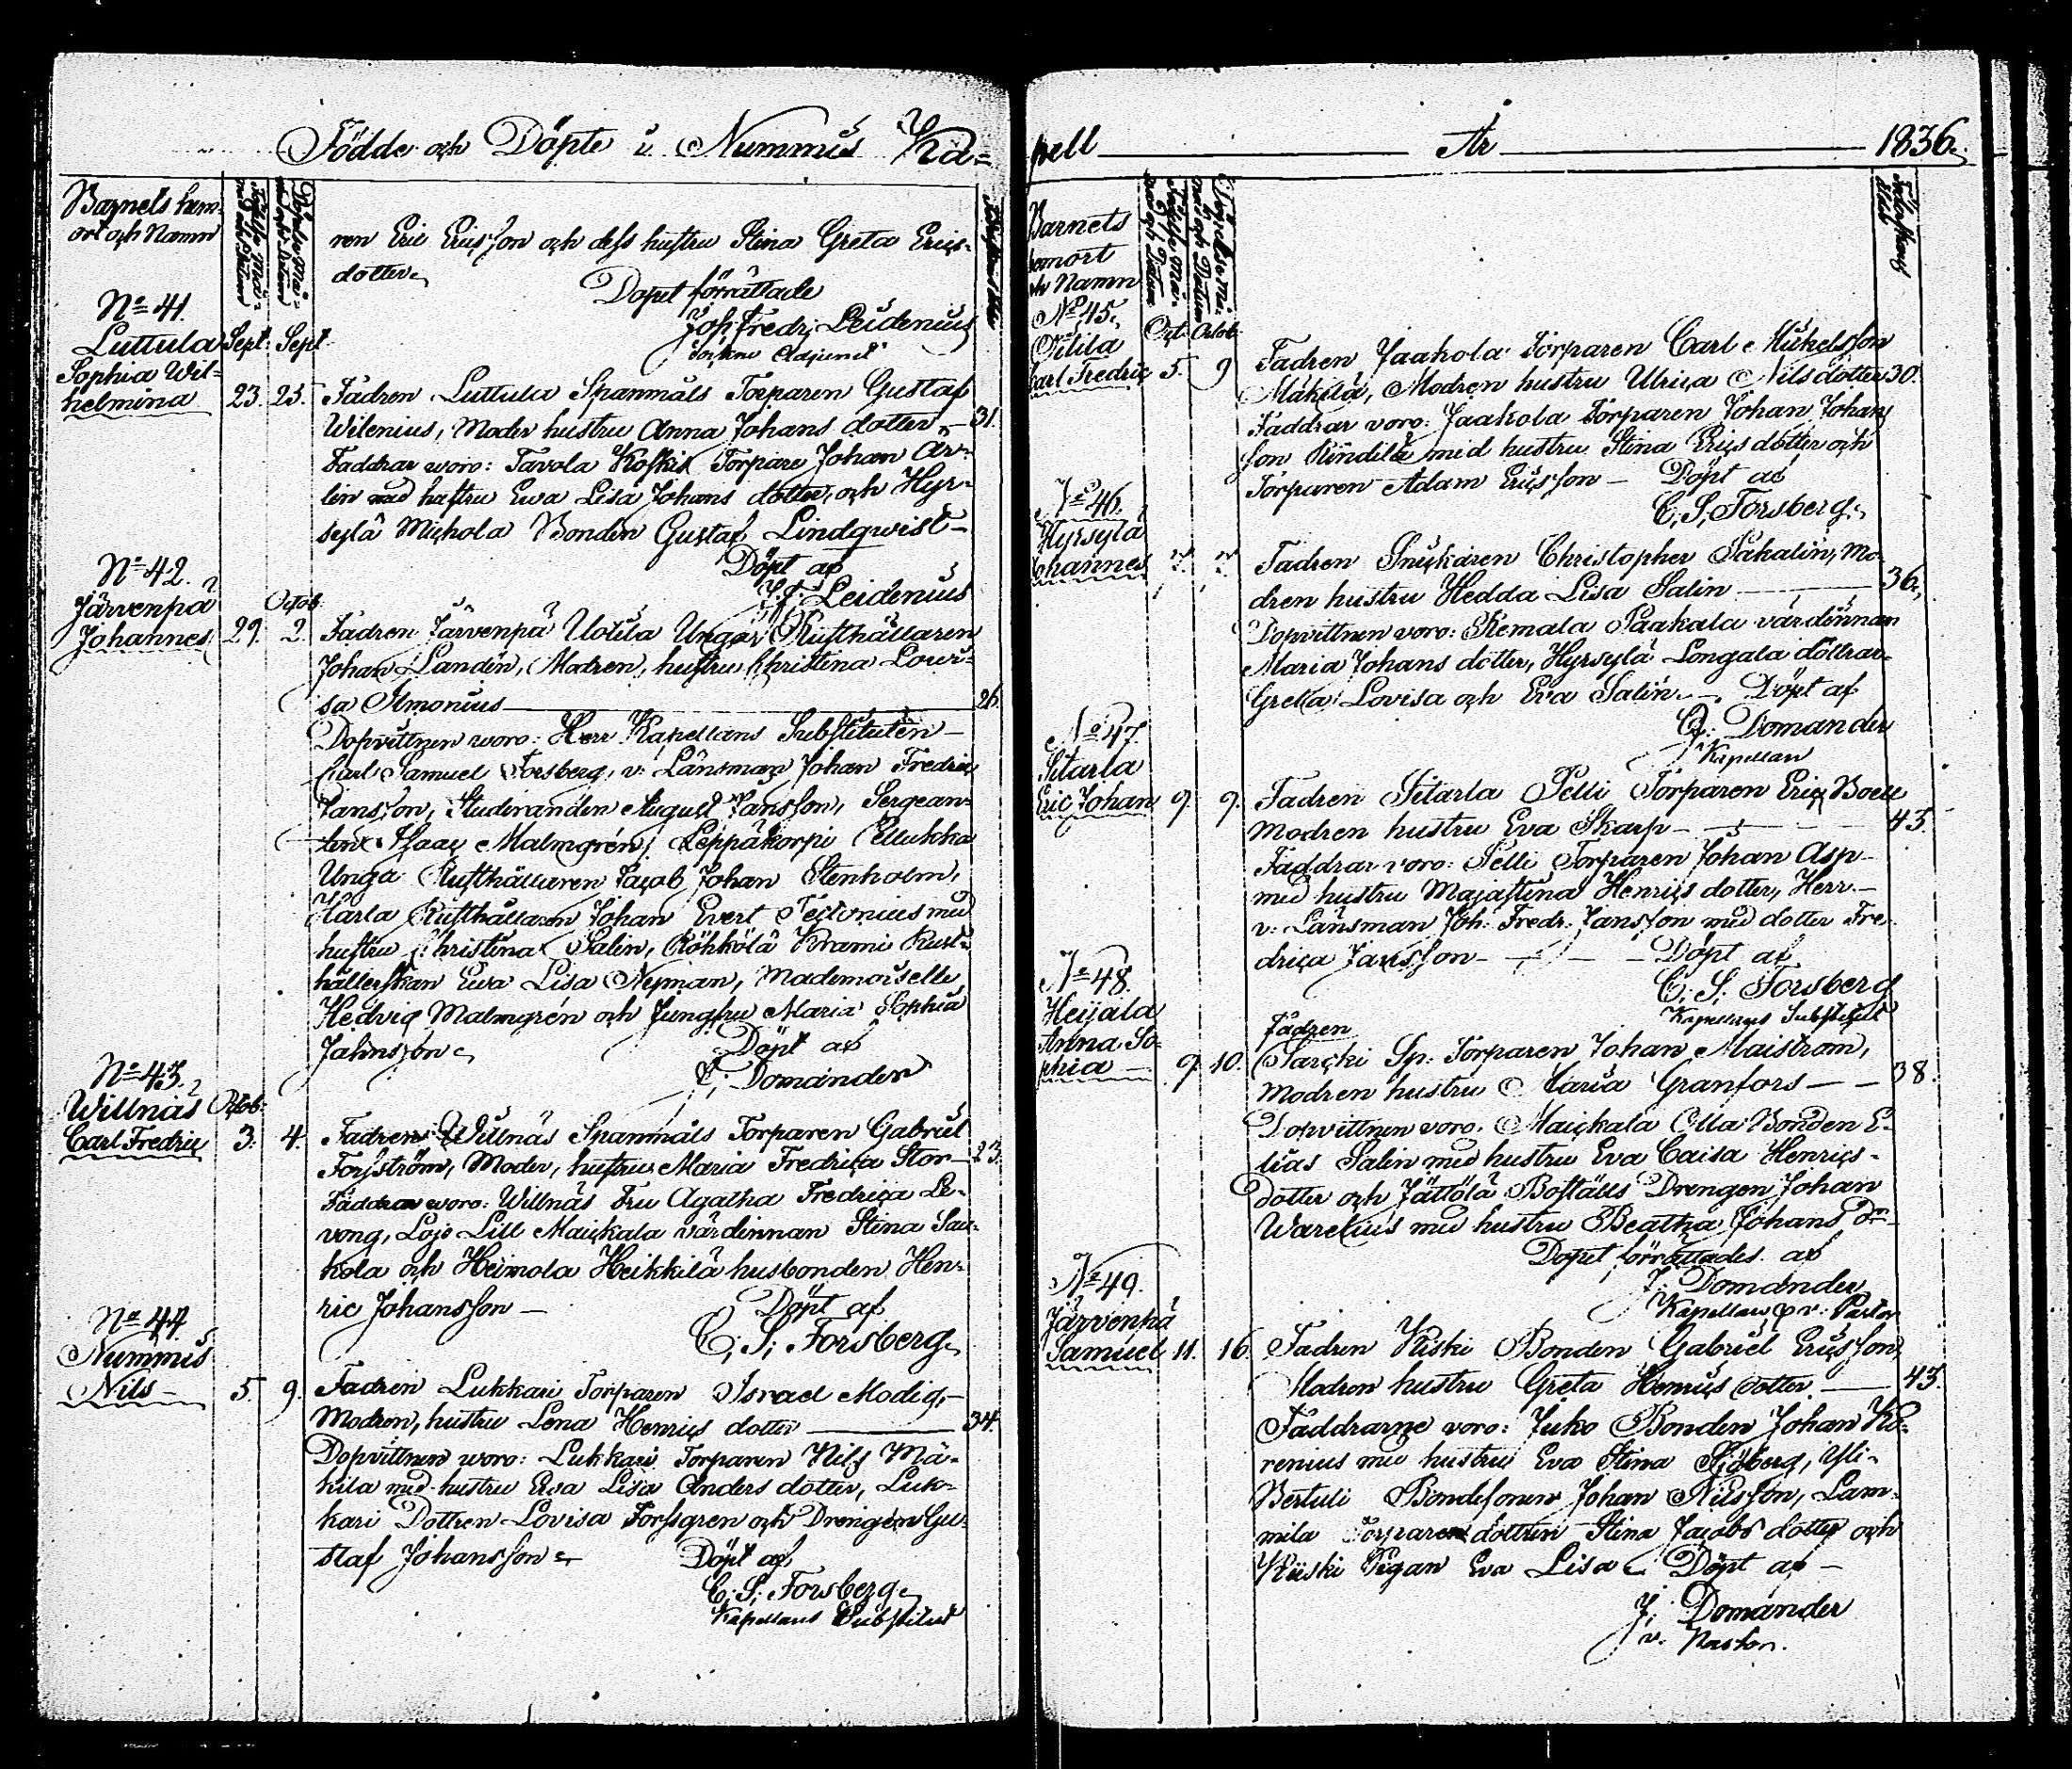 Födde och Döpte i Nummis Ka=
Barnets hem=
ort och Namn
ren Eric Ericsson och dess hustru Stina Greta Erics=
dotter
Dopet förrättade
Joh: Fredr: Leidenius
Adjunct
No 41.
Luttula Sept: Sept
Sophia Wil=
helmina 23. 25. Fadren Luttula Spanmåls Torparen Gustaf
Wilenius, Moder hustru Anna Johans dotter 31.
Faddrar woro: Tavola Koskis Torpare Johan Ar=
lin med hustru Ewa Lisa Johans dotter och Hyr=
sylä Michola Bonden Gustaf Lindqwist
Döpt af
J: F: Leidenius
No 42.
Järvenpä Octob:
Johannes 29. 2. Fadren Järvenpä Uotila Ungar Rusthållaren
Johan Landen, Modren, hustru Christina Lowi=
sa Ilmonius 26.
Dopvittnen woro: Herr Kapellans Substituten
Carl Samuel Forsberg, v: Länsman Johan Fredric
Jansson, Studeranden August Jansson, Sergean=
ten Isaac Malmgrén, Leppäkorpi Ellukka
Unga Rusthållaren Jacob Johan Stenholm,
Harla Rusthållaren Johan Evert Teitonius med
hustru Christina Salin, Röhkölä Krami Rust=
hållerskan Ewa Lisa Nyman, Mademoiselle
Hedvig Malmgrén och Jungfru Maria Sophia
Jahnsson
Döpt af
J: Domander
No 43.
Willnäs Octob:
Carl Fredric 3. 4. Fadren Willnäs Spanmåls Torparen Gabriel
Forsström, Moder, hustru Maria Fredrica Stor 23.
Faddrar woro: Willnäs Fru Agatha Fredrica Le=
vong, Lojo Lill Maickala värdinnan Stina Sau=
kola och Heimola Heikkilä husbonden Hen=
ric Johansson Döpt af
C: S: Forsberg
No 44.
Nummis
Nils 5. 9. Fadren Lukkari Torparen Israel Modig,
Modren, hustru Lena Henrics dotter 34.
Dopvittnen woro: Lukkari Torparen Nils Mä=
kila med hustru Ewa Lisa Anders dotter, Luk=
kari Dottren Lovisa Forssgren och Drengen Gu=
staf Johansson Döpt af
C: S: Forsberg
Kapellans Substitut
pell År 1836.
Barnets
hemort
och Namn
No 45.
Oitila Oct: Octob:
Carl Fredric 5. 9 Fadren Jaakola Torparen Carl Mickelsson
Mäkilä, Modren hustru Ulrica Nilsdotter 30.
Faddrar voro: Jaakola Torparen Johan Johans
son med hustru Stina Erics dotter och
Torparen Adam Ericsson Döpt af
C: S: Forsberg
No 46.
Hyrsylä
Johannes 7. 7. Fadren Snickaren Christopher Pakalin, Mo
dren hustru Hedda Lisa Salin 36.
Dopvittnen voro: Remala Paakala värdinnan
Maria Johans dotter, Hyrsylä Longala döttrar
Greta Lovisa och Eva Salin. Döpt af
J: Domander
Kapellan
No 47.
Sitarla
Eric Johan 9 9. Fadren Sitarla Pelli Torparen Eric Boell
Modren hustru Eva Skarp 43.
Faddrar voro: Pelli Torparen Johan Asp
med hustru Majastina Henrics dotter, Herr
v: Länsman Joh: Fredr: Jansson med dotter Fre
drica Jansson Döpt af
C: S: Forsberg
Kapellans Substitut
No 48.
Heijala
Anna So=
phia 9 10. Fadren
Sarcki Sp: Torparen Johan Maistrom,
Modren hustru Maria Granfors 38.
Dopvittnen voro: Maickala Olla Bonden E=
lias Salin med hustru Eva Caisa Henrics=
dotter och Jättölä Boställs Drengen Johan
Warelius med hustru Beatha Johans Dr
Dopet förrättades af
J: Domander
Kapellan & v: Pastor
No 49.
Järvenpä
Samuel 11. 16. Fadren Kiski Bonden Gabriel Ericsson,
Modren hustru Greta Henrics dotter. 43.
Faddrarne voro: Juko Bonden Johan Ko=
renius med hustru Eva Stina Sjöberg, Yli=
Bertuli Bondesonen Johan Nilsson, Lam=
mila Torpare dottren Stina Jacobs dotter och
Kiiski Pigan Eva Lisa Döpt af
J: Domander
v. Pastor.